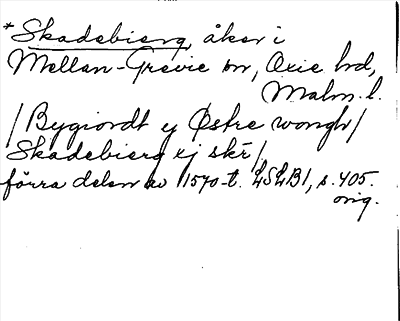 *Skadebierg, åker i
Mellan-Grevie sn, Oxie hd,
Malm. l.
/Bygiordt y Østre wongh/
Skadebierg ej skr/
förra delen av 1570-t. LSLB1, s. 405.
orig.